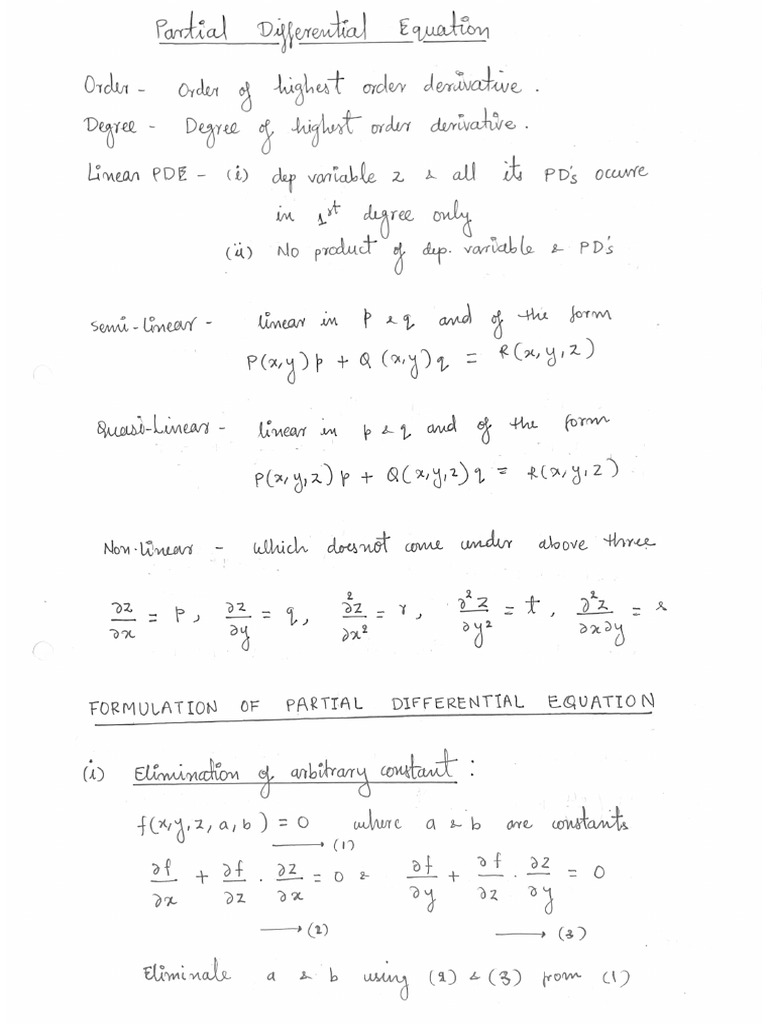 Partial Differential Equation
Order - Order of highest order derivative.
Degree - Degree of highest order derivative.
Linear PDE - (i) dep variable z & all its PD's occurre
in 1st degree only
(ii) No product of dep. variable & PD's
Semi-linear - linear in p & q and of the form
P(x,y)p + Q(x,y)q = R(x,y,z)
Quasi-Linear - linear in p & q and of the form
P(x,y,z)p + Q(x,y,z)q = R(x,y,z)
Non-linear - which doesnot come under above three
∂z/∂x = p, ∂z/∂y = q, ∂²z/∂x² = r, ∂²z/∂y² = t, ∂²z/∂x∂y = s
FORMULATION OF PARTIAL DIFFERENTIAL EQUATION
(i) Elimination of arbitrary constant :
f(x,y,z,a,b) = 0 where a & b are constants
⟶ (1)
∂f/∂x + ∂f/∂z · ∂z/∂x = 0 & ∂f/∂y + ∂f/∂z · ∂z/∂y = 0
⟶ (2) ⟶ (3)
Eliminate a & b using (2) & (3) from (1)